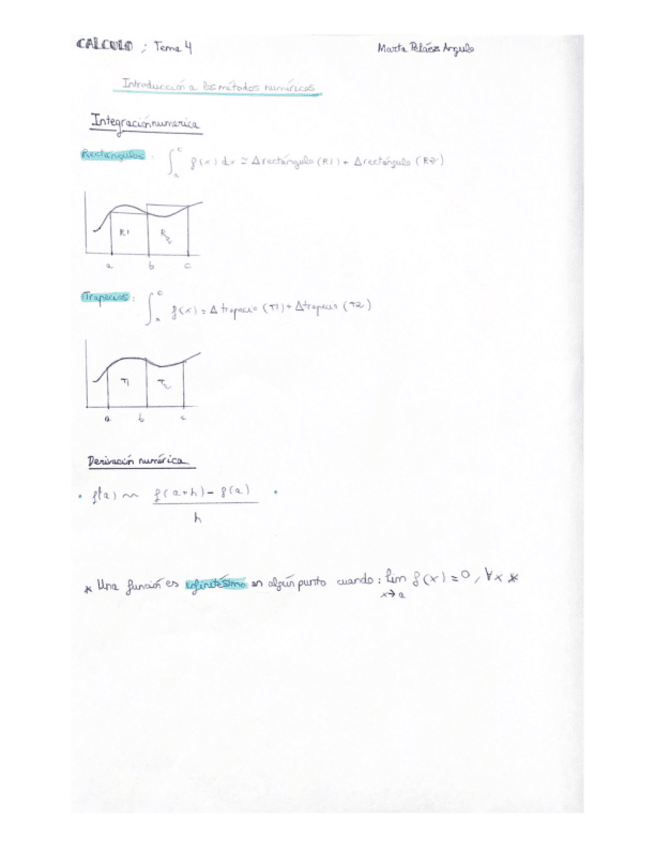 CALCULO ; Tema 4 Marta Peláez Angulo
Introducción a los métodos numéricos
Integración numerica
Rectángulos : ∫ₐᶜ f(x) dx ≃ Δrectángulo (R1) + Δrectángulo (R2)
R1 R2
a b c
Trapecios : ∫ₐᶜ f(x) = Δ trapecio (T1) + Δtrapecio (T2)
T1 T2
a b c
Derivación numérica
• f'(a) ~ f(a+h) - f(a) •
h
* Una función es infinitésimo en algún punto cuando : lim f(x) = 0, ∀x *
x→a